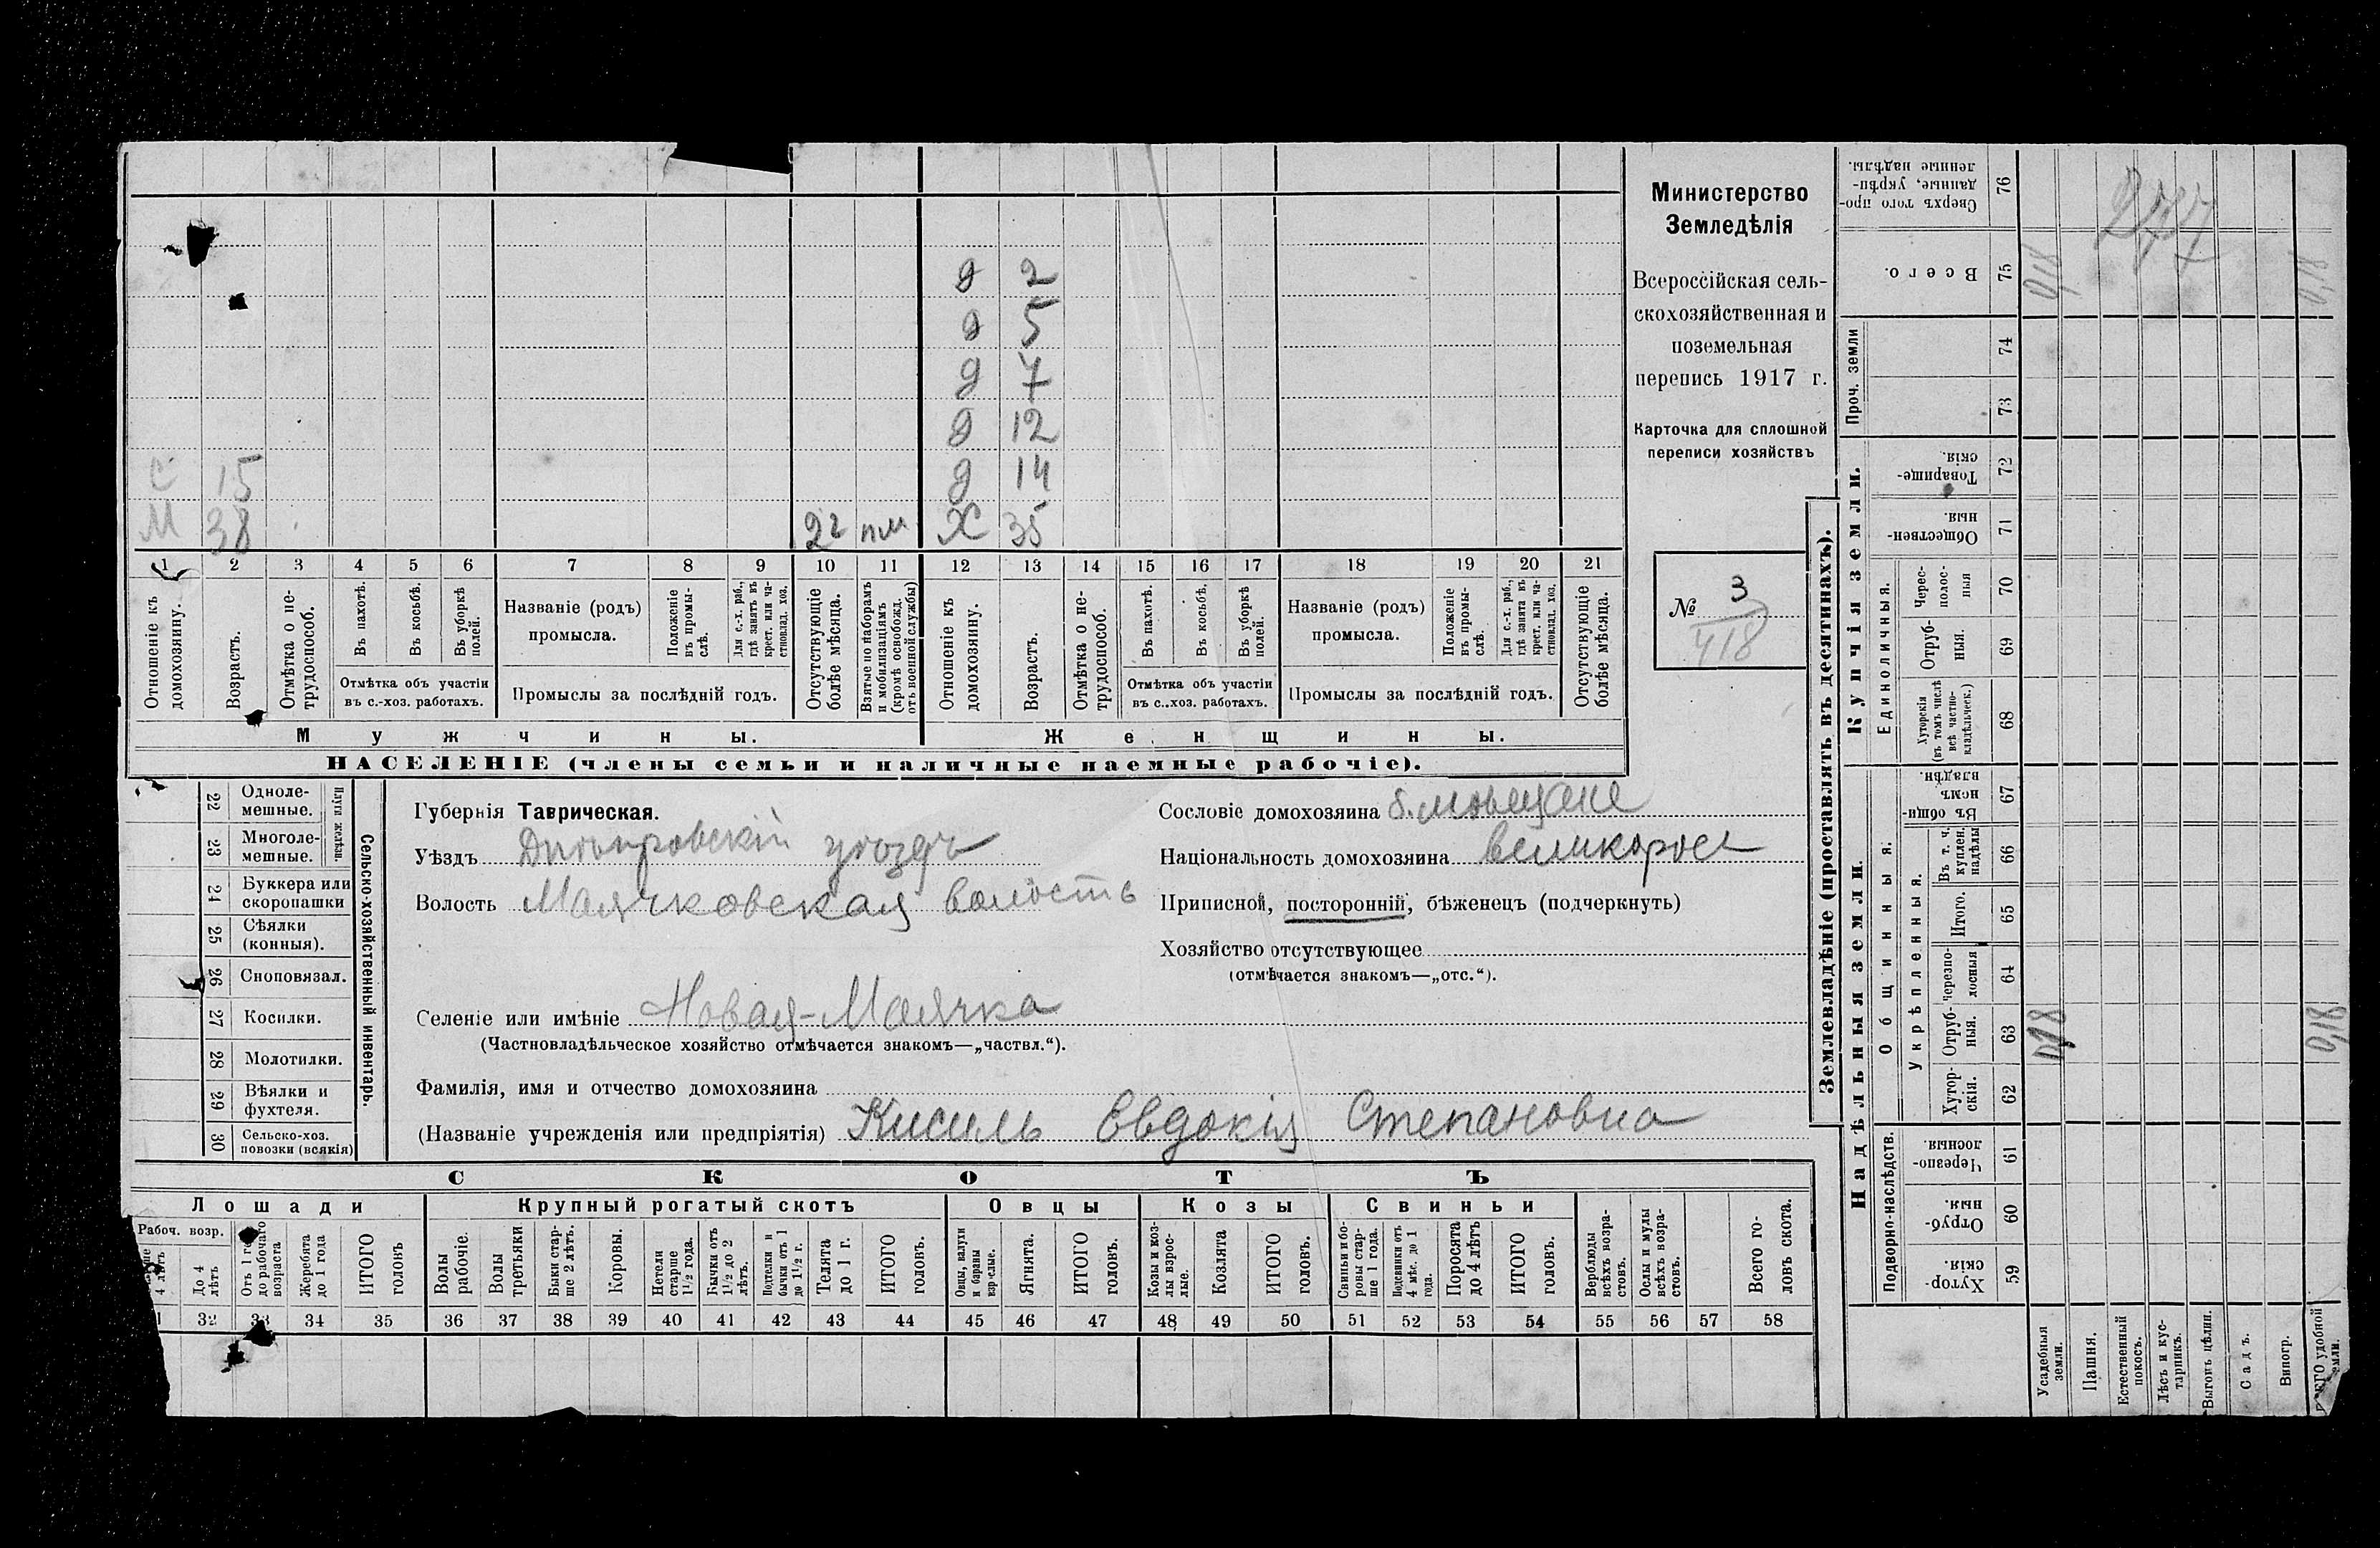 Министерство
Земледѣлія
Всероссійская сель-
скохозяйственная и
поземельная
перепись 1917 г.
Карточка для сплошной
переписи хозяйствъ
№ 3
418
д 2
д 5
д 7
д 12
с 15 д 14
М 38 22 пм Х 35
1 2 3 4 5 6 7 8 9 10 11 12 13 14 15 16 17 18 19 20 21
Отношеніе къ домохозяину.
Возрастъ.
Отмѣтка о не-трудоспособ.
Въ пахотѣ.
Въ косьбѣ.
Въ уборкѣ полей.
Отмѣтка объ участіи
въ с.-хоз. работахъ.
Названіе (родъ)
промысла.
Положеніе въ промы-слѣ.
Для с.-х. раб., гдѣ занятъ въ крест. или ча-стновлад. хоз.
Промыслы за послѣдній годъ.
Отсутствующіе болѣе мѣсяца.
Взятые по наборамъ и мобилизаціямъ (кромѣ освобожд. отъ военной службы)
Отношеніе къ домохозяину.
Возрастъ.
Отмѣтка о не-трудоспособ.
Въ пахотѣ.
Въ косьбѣ.
Въ уборкѣ полей.
Отмѣтка объ участіи
въ с.-хоз. работахъ.
Названіе (родъ)
промысла.
Положеніе въ промы-слѣ.
Для с.-х. раб., гдѣ занята въ крест. или ча-стновлад. хоз.
Промыслы за послѣдній годъ.
Отсутствующіе болѣе мѣсяца.
Мужчины. Женщины.
НАСЕЛЕНІЕ (члены семьи и наличные наемные рабочіе).
Сельско-хозяйственный инвентарь.
Плуги желѣзн.
22 Одноле-мешные.
23 Многоле-мешные.
24 Буккера или скоропашки
25 Сѣялки (конныя).
26 Сноповязал.
27 Косилки.
28 Молотилки.
29 Вѣялки и фухтеля.
30 Сельско-хоз. повозки (всякія)
Губернія Таврическая.
Уѣздъ Днѣпровскій уѣздъ
Волость Маячковская волость
Селеніе или имѣніе Новая-Маячка
(Частновладѣльческое хозяйство отмѣчается знакомъ—„частвл.“).
Фамилія, имя и отчество домохозяина
(Названіе учрежденія или предпріятія) Кисиль Евдокія Степановна
Сословіе домохозяина
Національность домохозяина великоросъ
Приписной, посторонній, бѣженецъ (подчеркнуть)
Хозяйство отсутствующее
(отмѣчается знакомъ—„отс.“).
СКОТЪ
Лошади Крупный рогатый скотъ Овцы Козы Свиньи
Рабоч. возр.
До 4 лѣтъ
Жеребята до 1 года
ИТОГО головъ
Волы рабочіе.
Волы третьяки
Быки стар-ше 2 лѣтъ.
Коровы.
Нетели старше 1½ года.
Бычки отъ 1½ до 2 лѣтъ.
Подтелки и бычки отъ 1 до 1½ г.
Телята до 1 г.
ИТОГО головъ.
Овцы, валухи и бараны взрослые.
Ягнята.
ИТОГО головъ.
Козы и коз-лы взрос-лые.
Козлята
ИТОГО головъ.
Свиньи и бо-ровы стар-ше 1 года.
Подсвинки отъ 4 мѣс. до 1 года.
Поросята до 4 лѣтъ
ИТОГО головъ.
Верблюды всѣхъ возра-стовъ.
Ослы и мулы всѣхъ возра-стовъ.
Всего го-ловъ скота.
32 33 34 35 36 37 38 39 40 41 42 43 44 45 46 47 48 49 50 51 52 53 54 55 56 57 58
Землевладѣніе (проставлять въ десятинахъ).
Надѣльныя земли.
Купчія земли.
Проч. земли
Подворно-наслѣдств.
Общинныя.
Укрѣпленныя.
Единоличныя.
59 Хутор-скія.
60 Отруб-ныя.
61 Черезпо-лосныя.
62 Хутор-скія.
63 Отруб-ныя.
64 Черезпо-лосныя
65 Итого.
66 Въ т. ч. куплен. надѣлы
67 Въ общин-номъ владѣн.
68 Хуторскія (въ томъ числѣ всѣ частно-владѣльческ.)
69 Отруб-ныя.
70 Черес-полос-ныя
71 Обществен-ныя.
72 Товарище-скія.
73
74
75 Всего.
76 Сверхъ того про-данные, укрѣп-ленные надѣлы.
Усадебныя земли.
Пашня.
Естественный покосъ.
Лѣсъ и кус-тарникъ.
Выгонъ цѣлин.
Садъ.
Виногр.
0,18
0,18
0,18
0,18